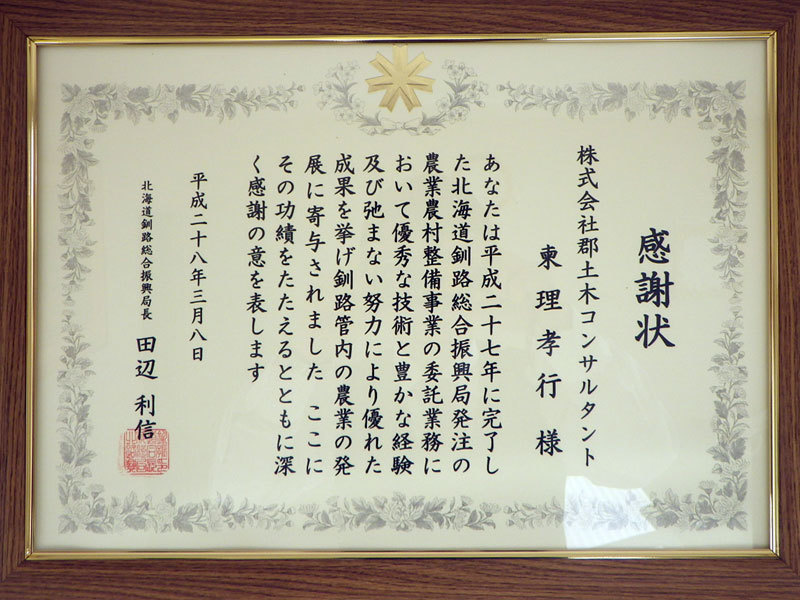 感謝状
株式会社郡土木コンサルタント
東理孝行様
あなたは平成二十七年に完了し
た北海道釧路総合振興局発注の
農業農村整備事業の委託業務に
おいて優秀な技術と豊かな経験
及び弛まない努力により優れた
成果を挙げ釧路管内の農業の発
展に寄与されました ここに
その功績をたたえるとともに深
く感謝の意を表します
平成二十八年三月八日
北海道釧路総合振興局長 田辺利信